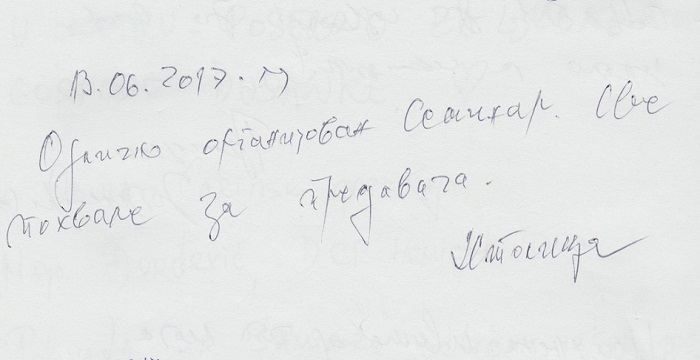 13.06.2017. г
Одлично организован семинар. Све
похвале за предавача.